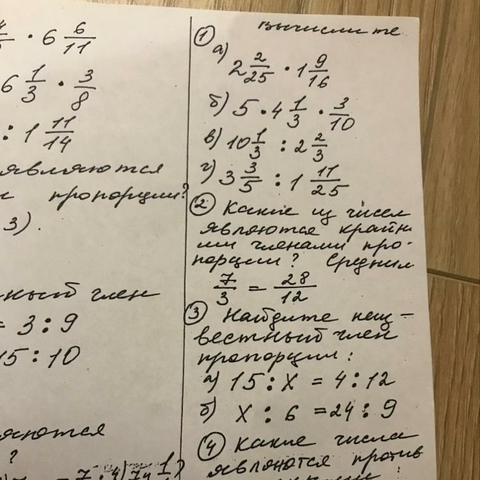 · 6 6/11
6 1/3 · 3/8
: 1 11/14
являются
пропорции?
3).
член
= 3 : 9
15 : 10
?
① Вычислите
а) 2 2/25 · 1 9/16
б) 5 · 4 1/3 · 3/10
в) 10 1/3 : 2 2/3
г) 3 3/5 : 1 11/25
② Какие из чисел
являются крайн
ими членами про-
порции? Средним
7/3 = 28/12
③ Найдите неиз-
вестный член
пропорции:
а) 15 : X = 4 : 12
б) X : 6 = 24 : 9
④ Какие числа
являются против